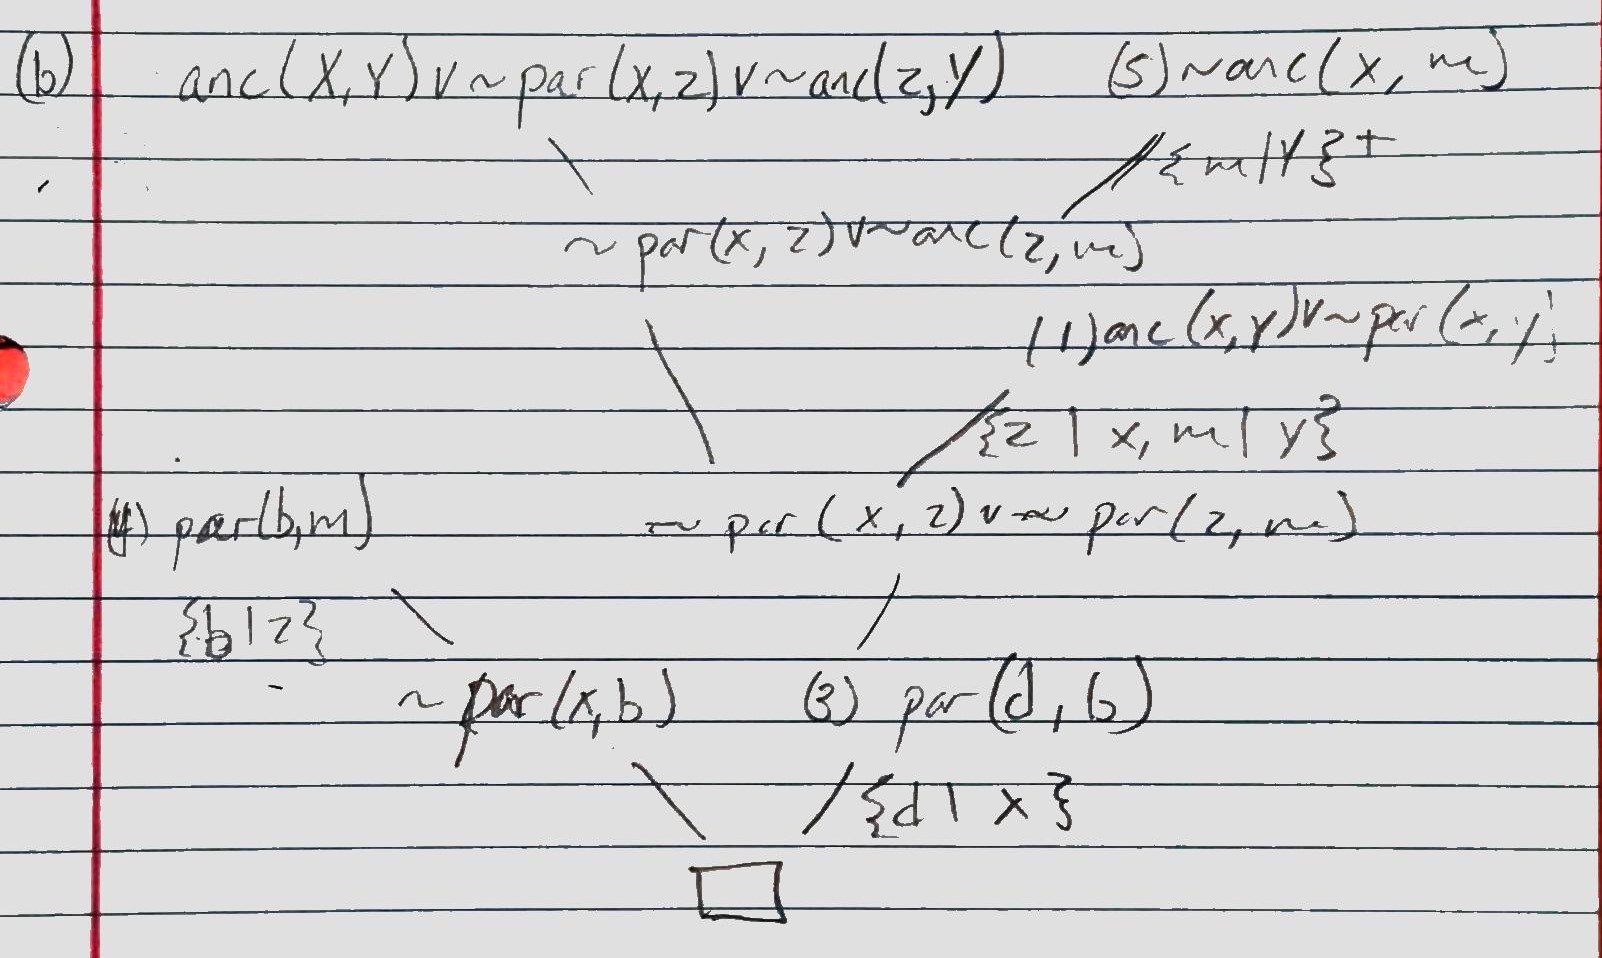 (b) anc(X,Y) v ~par(x,z) v ~anc(z,Y) (5) ~anc(x, m)
{m|Y}
~ par(x, z) v ~anc(z, m)
(1) anc(x,y) v ~ par(x, y)
{z | x, m | y}
(4) par(b,m) ~ par(x, z) v ~ par(z, m)
{b|z}
~ par(x,b) (3) par(d, b)
{d | x}